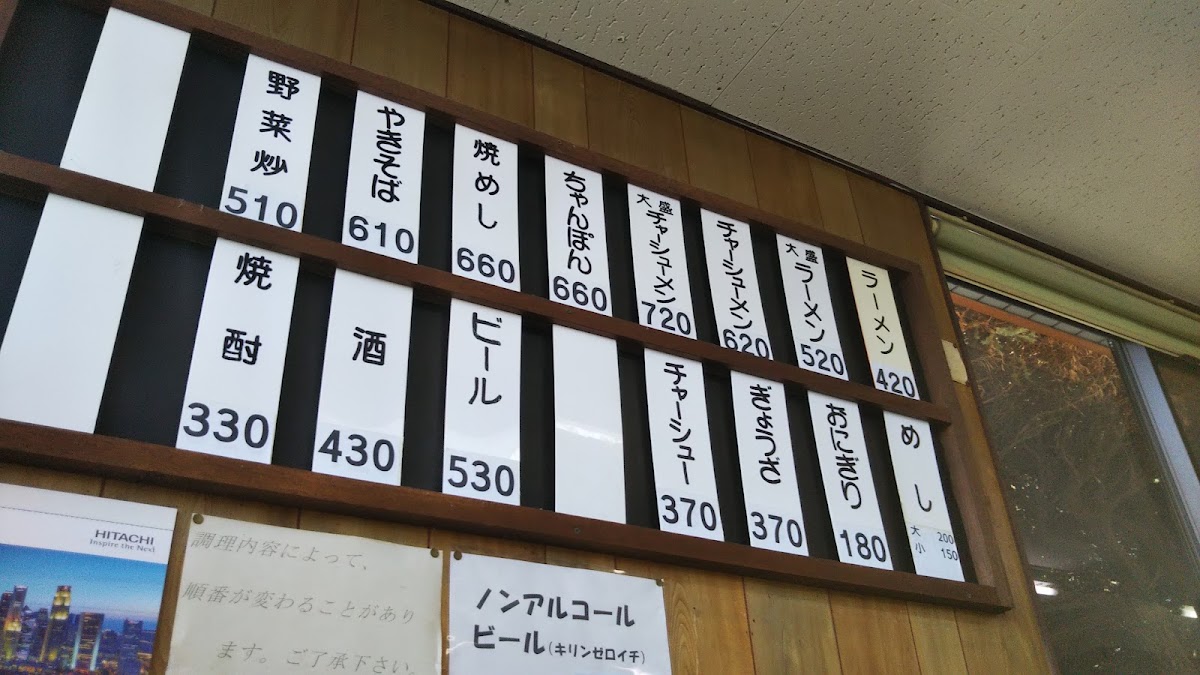 ラーメン
420
大盛
ラーメン
520
チャーシューメン
620
大盛
チャーシューメン
720
ちゃんぽん
660
焼めし
660
やきそば
610
野菜炒
510
めし
大 200
小 150
おにぎり
180
ぎょうざ
370
チャーシュー
370
ビール
530
酒
430
焼酎
330
HITACHI
Inspire the Next
調理内容によって、
順番が変わることがあり
ます。ご了承下さい。
ノンアルコール
ビール(キリンゼロイチ)